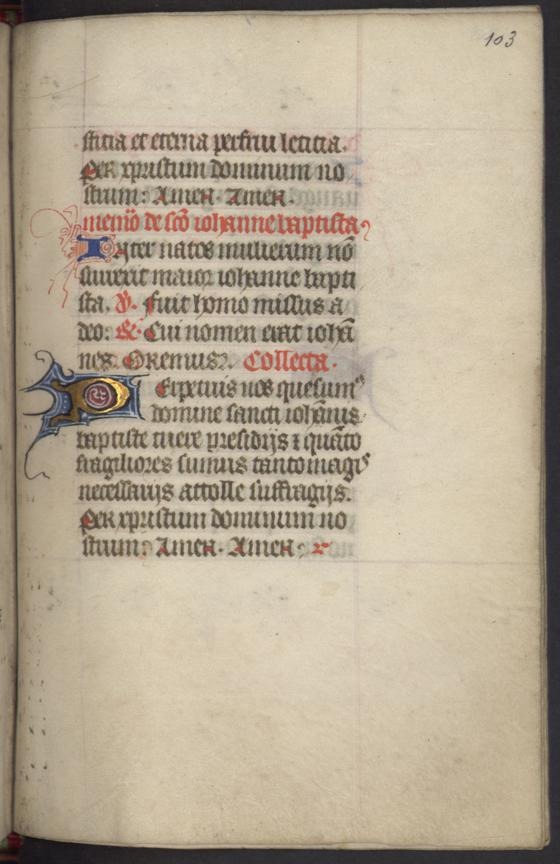 103
sticia et eterna perfrui leticia.
Per xpristum dominum no
strum: Amen. Amen.
memō de scō iohanne baptista
Inter natos mulierum nō
surrexit maior iohanne bapti
sta. V. Fuit homo missus a
deo: R. Cui nomen erat iohā
nes. Oremus. Collecta.
Perpetuis nos quesumꝰ
domine sancti iohānis
baptiste tuere presidijs ⁊ quāto
fragiliores sumus tanto magꝭ
necessarijs attolle suffragijs.
Per xpristum dominum no
strum: Amen. Amen.